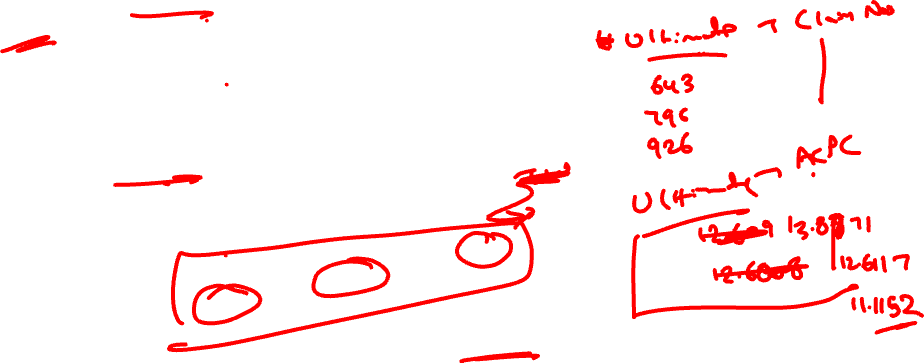 # Ultimate → Claim No
643
796
926
Ultimate → ACPC
13.8871
12.6117
11.1152